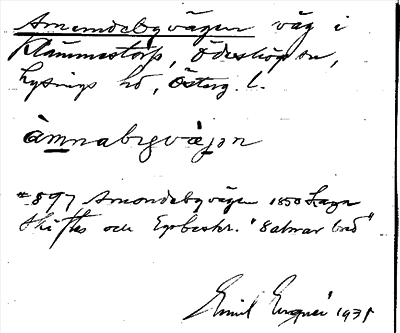 Amemdebyvägen väg i
Klämmestorp, Ödeshög sn,
Lysings hd, Österg. l.
àmnabygvàjən
#897 Amondebyvägen 1850 Laga
Skiftes och Egobeskr. "8 alnar bred"
Emil 1935